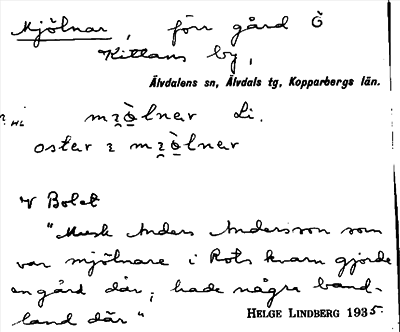 Mjölnar, förr gård Ö
Kittans by,
Älvdalens sn, Älvdals tg, Kopparbergs län.
Li.
V Bolet
"Musk Anders Andersson som
var mjölnare i Rots kvarn gjorde
en gård där; hade några band-
land där"
HELGE LINDBERG 1935.